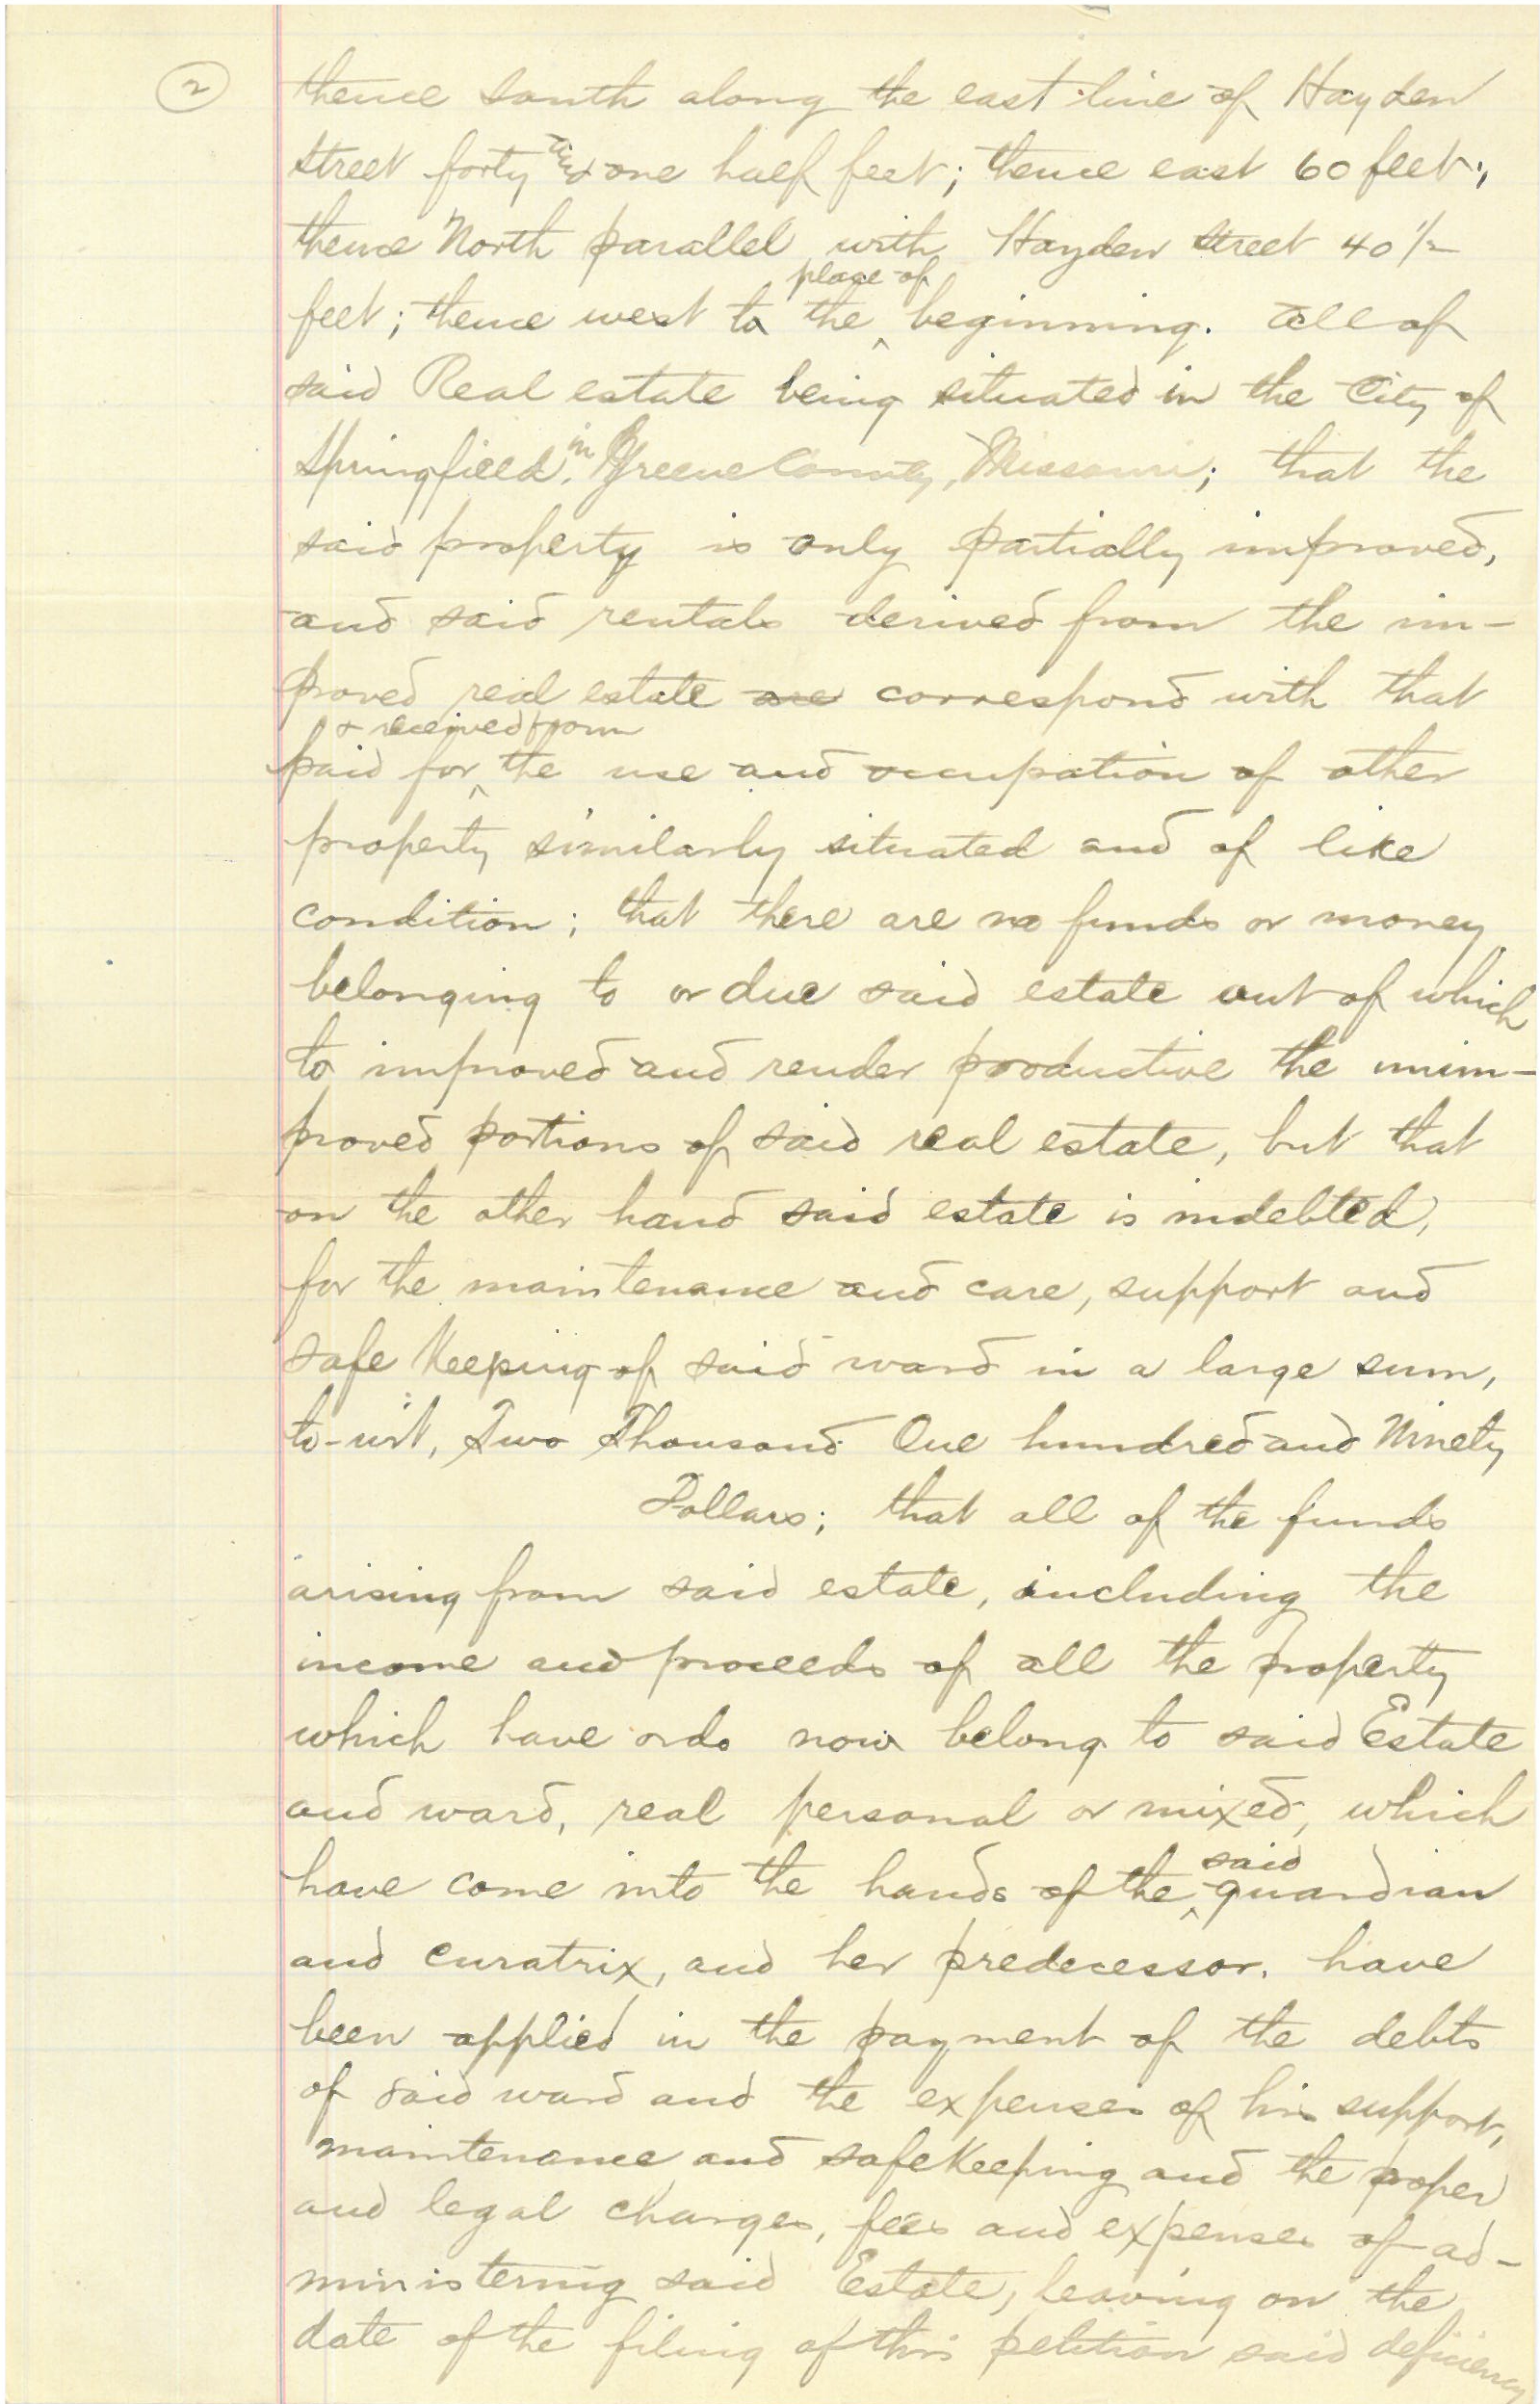 2
thence South along the east line of Hayden
Street forty and one half feet; thence east 60 feet;
thence North parallel with Hayden Street 40 1/2
place of
feet; thence west to the ^ beginning. All of
said Real estate being situated in the City of
Springfield, in Greene County, Missouri; that the
said property is only partially improved,
and said rentals derived from the im-
proved real estate are correspond with that
& received from
paid for ^ the use and occupation of other
property similarly situated and of like
condition; that there are no funds or money
belonging to or due said estate out of which
to improved and render productive the unim-
proved portions of said real estate, but that
on the other hand said estate is indebted,
for the maintenance and care, support and
safe Keeping of said ward in a large sum,
to-wit, Two Thousand One hundred and Ninety
Dollars; that all of the funds
arising from said estate, including the
income and proceeds of all the property
which have or do now belong to said Estate
and ward, real personal or mixed, which
said
have come into the hands of the ^ guardian
and curatrix, and her predecessor, have
been applied in the payment of the debts
of said ward and the expenses of his support,
maintenance and safe Keeping and the proper
and legal charges, fees and expenses of ad-
ministering said Estate, leaving on the
date of the filing of this petition said deficiency